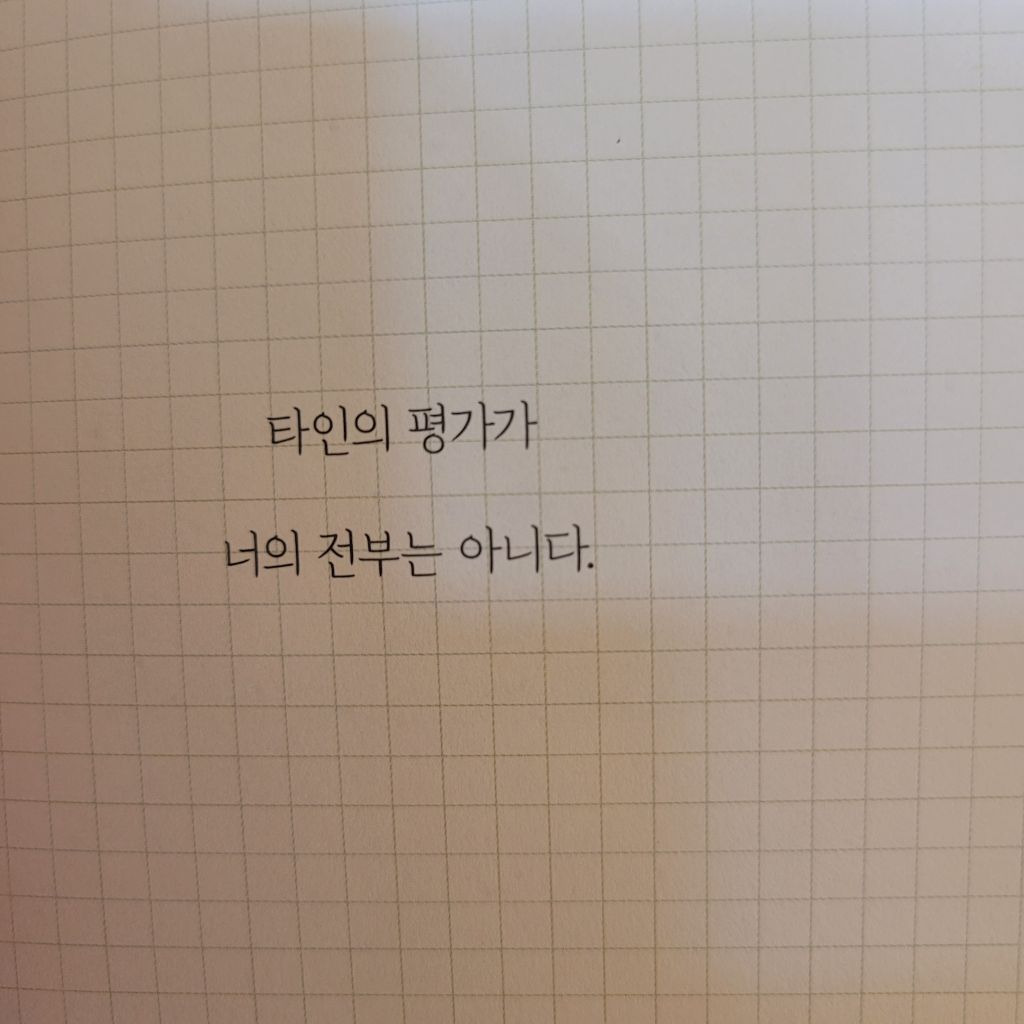 타인의 평가가
너의 전부는 아니다.